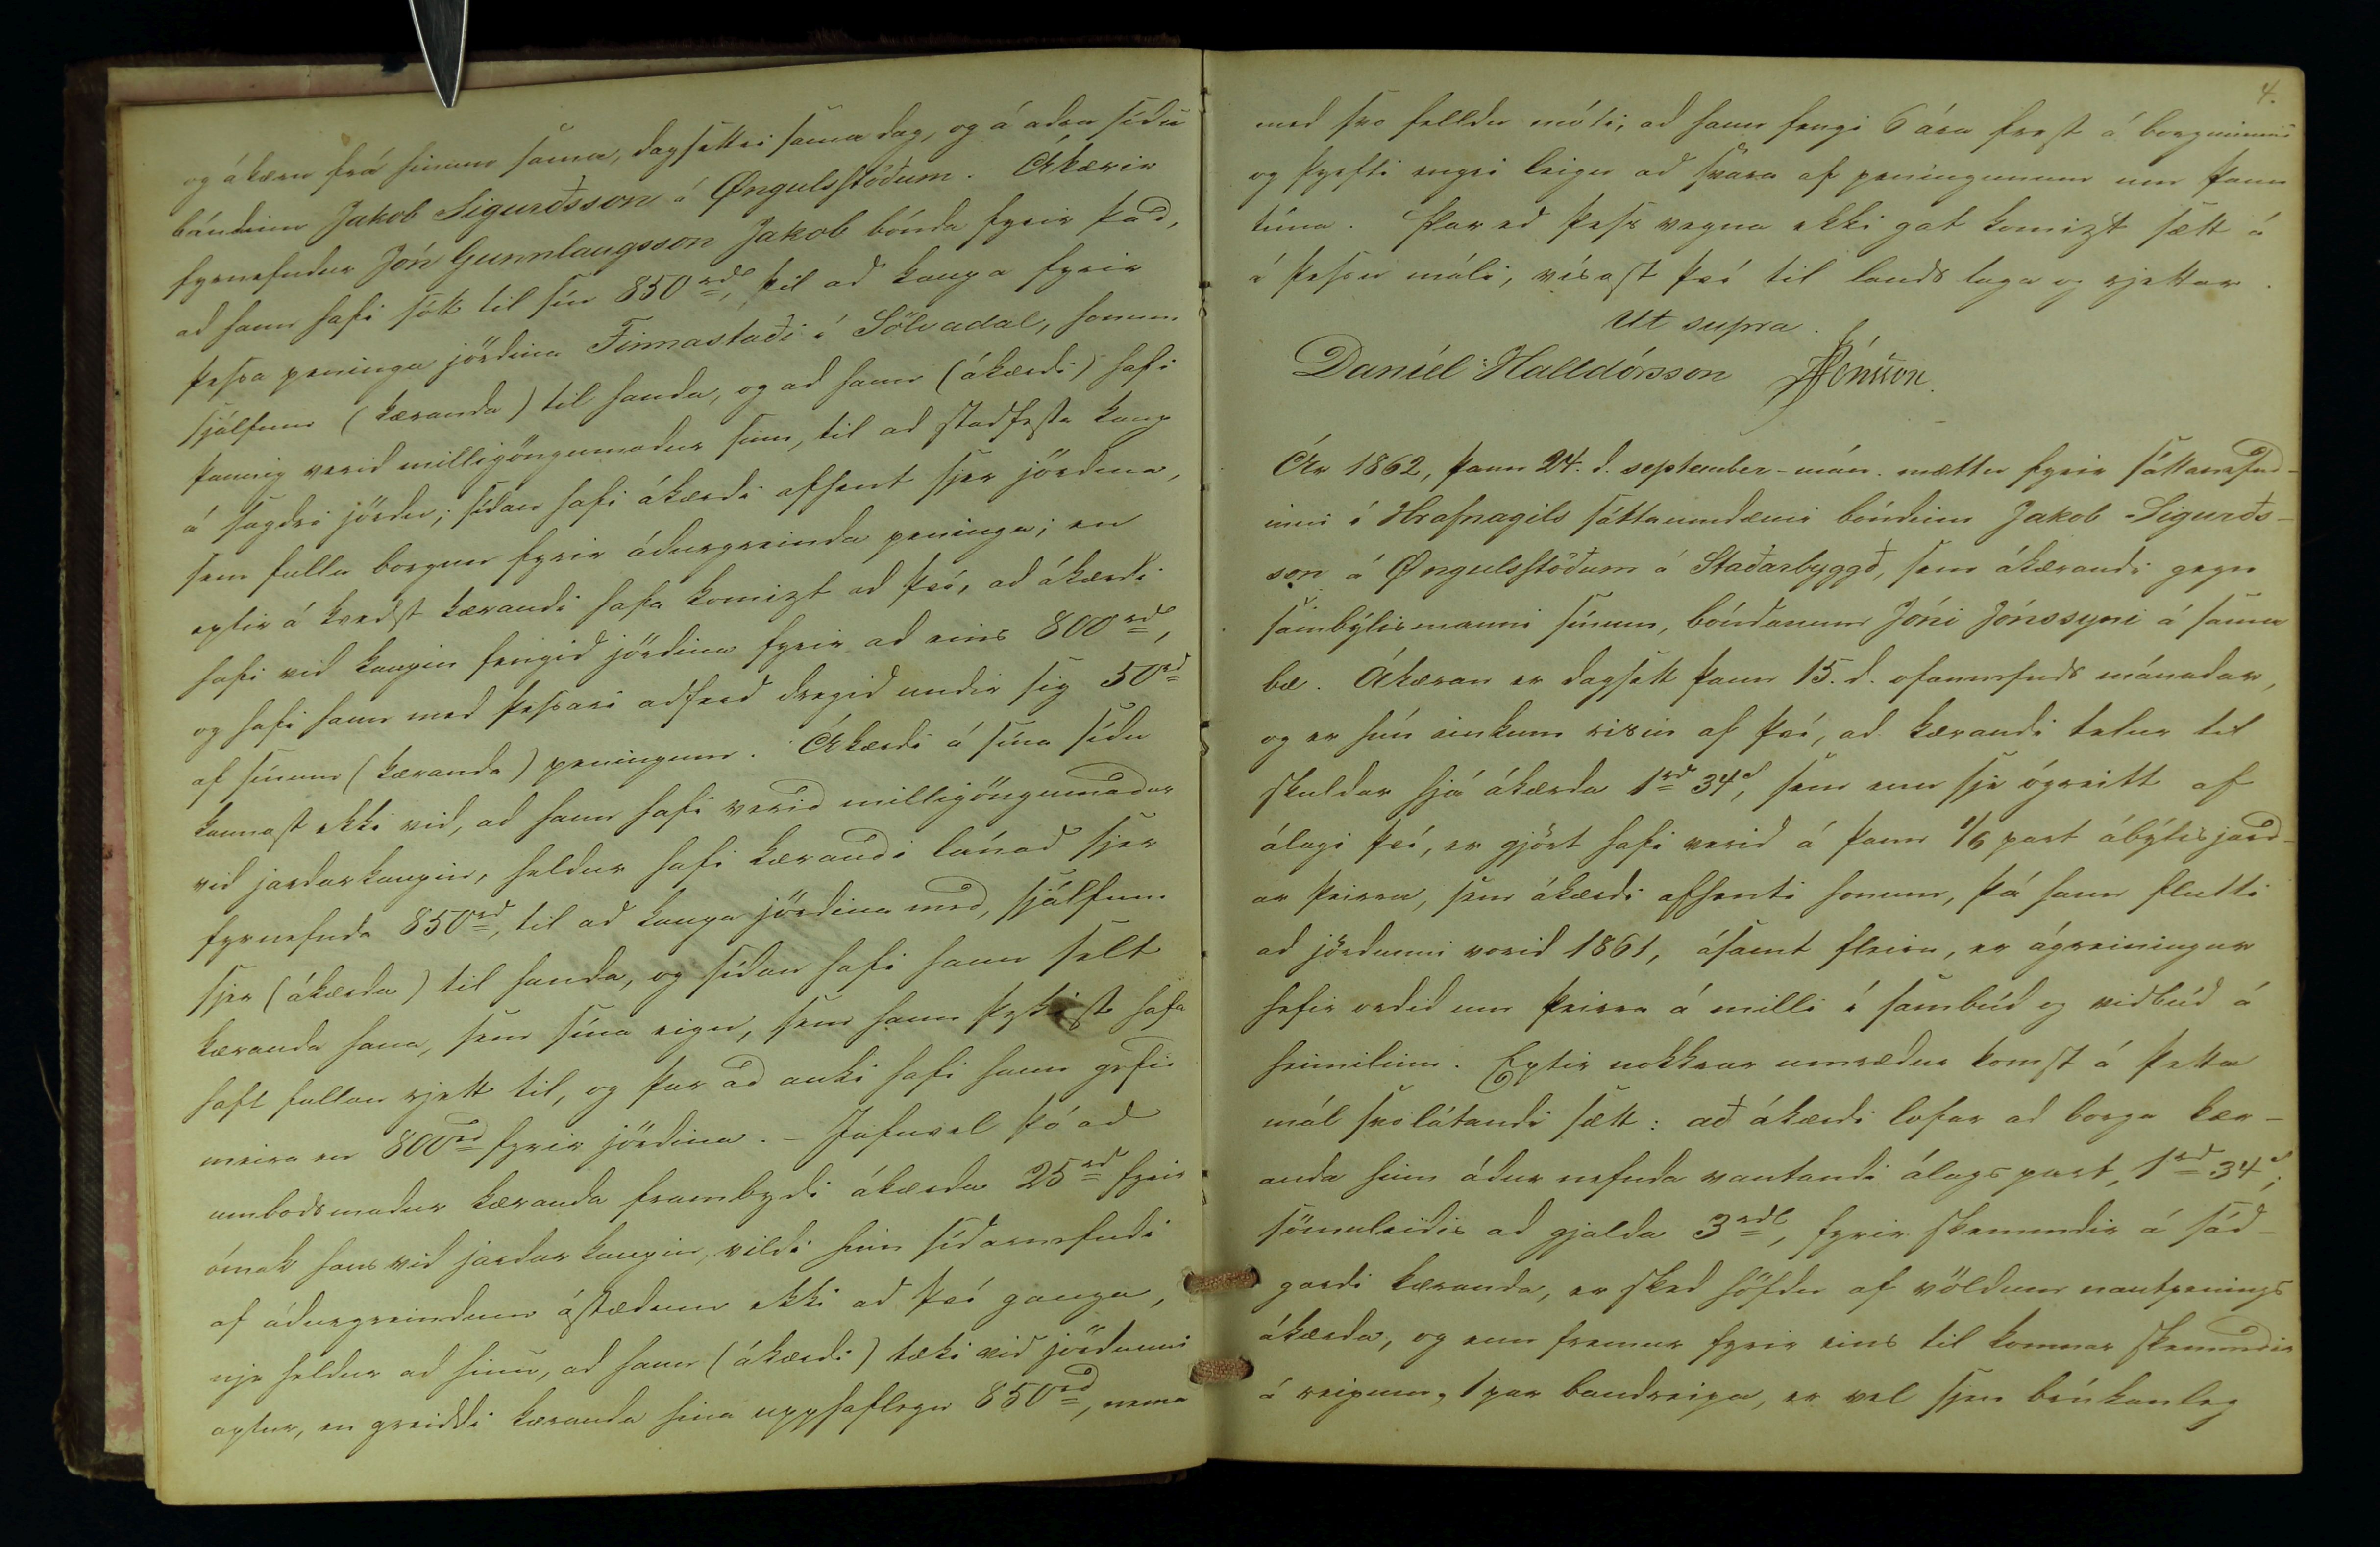 og ákæru frá hinum sama, dagsettri sama dag, og á aðra síðu
bóndinn Jakob Sigurðsson á Øngulsstöðum. Ákærir
fyrnefndur Jón Gunnlaugsson Jakob bónda fyrir það,
að hann hafi sókt til sín 850 rdl, til að kaupa fyrir
þessa peninga jörðina Finnastaði í Sölvadal, honum
sjálfum (kæranda) til handa, og að hann (ákærði) hafi
þannig verið milligöngumaður sinn, til að staðfesta kaup
á sagðri jörðu; síðan hafi ákærði afhent sjer jörðina,
sem fulla borgun fyrir áðurgreinda peninga; en
eptir á kveðst kærandi hafa komizt að því, að ákærði
hafi við kaupin fengið jörðina fyrir að eins 800 rd,
og hafi hann með þessari aðferð dregið undir sig 50 rd
af sínum (kæranda) peningum. Ákærði á sína síðu
kannast ekki við, að hann hafi verið milligöngumaður
við jarðarkaupin, heldur hafi kærandi lánað sjer
fyrnefnda 850 rd, til að kaupa jörðina með, sjálfum
sjer (ákærða) til handa, og síðan hafi hann selt
kæranda hana, sem sína eign, sem hann þykist hafa
haft fullan rjett til, og þar að auki hafi hann gefið
meira en 800 rd fyrir jörðina. - Jafnvel þó að
umboðsmaður kæranda frambyði ákærða 25 rd fyrir
ómak hans við jarðarkaupin, vildi hinn síðarnefndi
af áðurgreindum ástæðum ekki að því ganga,
nje heldur að hinu, að hann (ákærði) tæki við jörðunni
aptur, en greiddi kæranda hina upphaflegu 850 rd, nema
4.
með svo felldu móti, að hann fengi 6 ára frest á borguninni
og þyrfti engri leigu að svara af peningunum um þann
tíma. Þar eð þess vegna ekki gat komizt sætt á
í þessu máli, vísast því til lands laga og rjettar.
Ut supra.
Daníel Halldórsson JJónsson.
Ár 1862, þann 24. d. september-mán. mættu fyrir sáttanefnd-
inni í Hrafnagils sáttaumdæmi bóndinn Jakob Sigurðs-
son á Øngulsstöðum á Staðarbyggð, sem ákærandi gegn
sambýlismanni sínum, bóndanum Jóni Jónssyni á sama
bæ. Ákæran er dagsett þann 15. d. ofannefnds mánaðar,
og er hún einkum risin af því, að kærandi telur til
skuldar hjá ákærða 1 rd 34 s, sem enn sje ógreitt af
álagi því, er gjört hafi verið á þann 1/6 part ábýlisjarð-
ar þeirra, sem ákærði afhenti honum, þá hann flutti
að jörðunni vorið 1861, ásamt fleiru, er ágreiningur
hefir orðið um þeirra á milli í sambúð og viðbúð á
heimilinu. Eptir nokkrar umræður komst á þetta
mál svolátandi sætt: að ákærði lofar að borga kær-
anda hinn áður nefnda vantandi álagspart, 1 rd 34 s;
sömuleiðis að gjalda 3 rdl, fyrir skemmdir á sáð-
garði kæranda, er skeð höfðu af völdum nautpenings
ákærða, og enn fremur fyrir eins til komnar skemmdir
á reipum, 1 par bandreipa, er vel sjeu brúkanleg